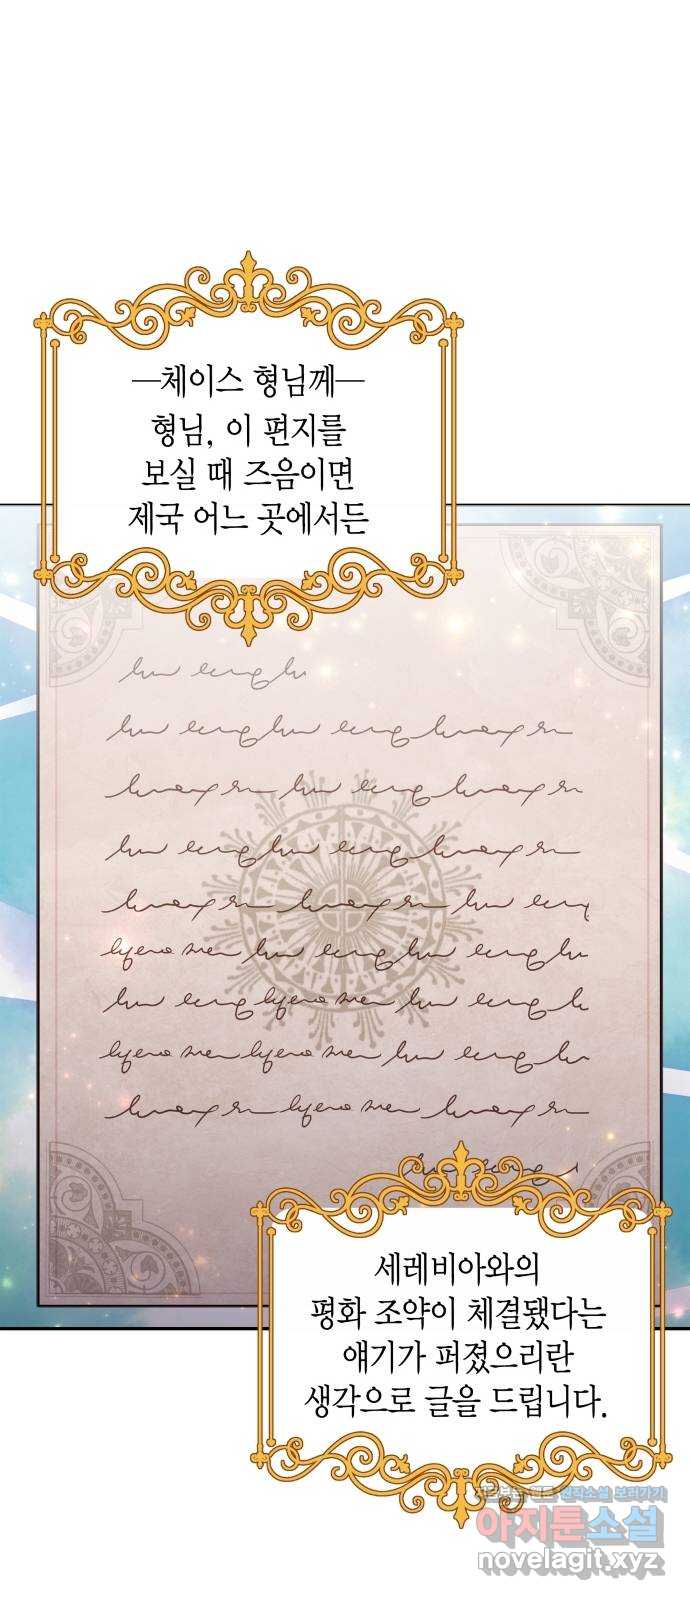 —체이스 형님께—
형님, 이 편지를
보실 때 즈음이면
제국 어느 곳에서든
세레비아와의
평화 조약이 체결됐다는
얘기가 퍼졌으리란
생각으로 글을 드립니다.
웹툰 원작소설 보러가기
아지툰소설
novelagit.xyz